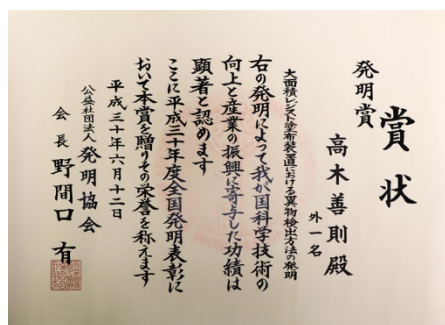 賞状
発明賞
高木善則殿
外一名
大面積レジスト塗布装置における異物検出方法の発明
右の発明によって我が国科学技術の
向上と産業の振興に寄与した功績は
顕著と認めます
ここに平成三十年度全国発明表彰に
おいて本賞を贈りその栄誉を称えます
平成三十年六月十二日
公益社団法人 発明協会
会長 野間口 有